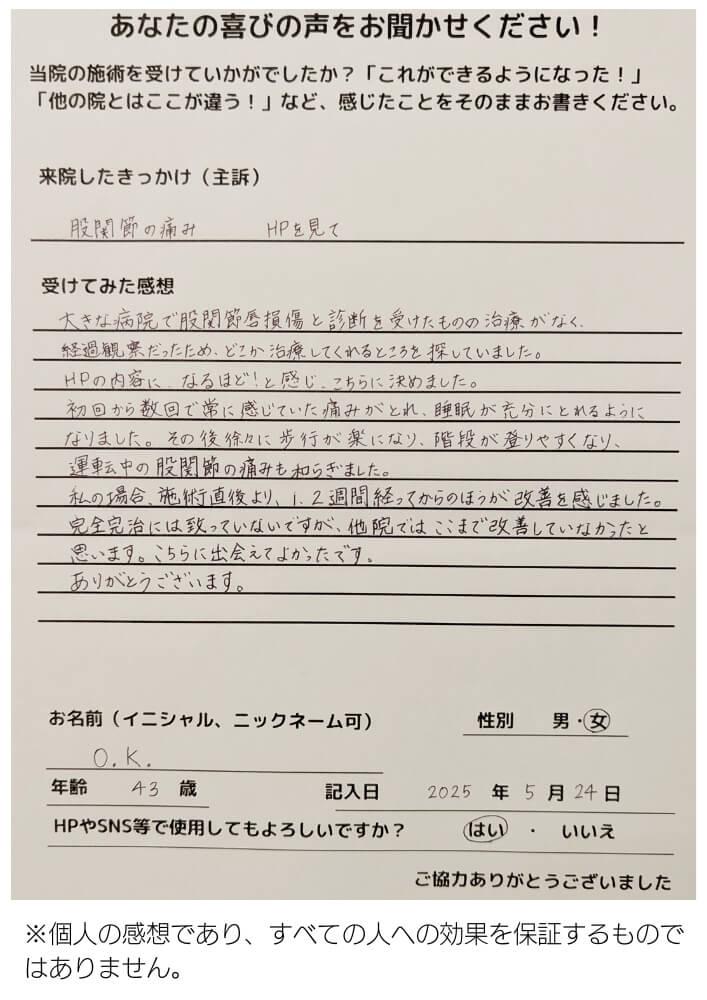 あなたの喜びの声をお聞かせください！
当院の施術を受けていかがでしたか？「これができるようになった！」
「他の院とはここが違う！」など、感じたことをそのままお書きください。
来院したきっかけ（主訴）
股関節の痛み　　HPを見て
受けてみた感想
大きな病院で股関節唇損傷と診断を受けたものの治療がなく、
経過観察だったため、どこか治療してくれるところを探していました。
HPの内容に、なるほど！と感じ、こちらに決めました。
初回から数回で常に感じていた痛みがとれ、睡眠が充分にとれるように
なりました。その後徐々に歩行が楽になり、階段が登りやすくなり、
運転中の股関節の痛みも和らぎました。
私の場合、施術直後より、1.2週間経ってからのほうが改善を感じました。
完全完治には致っていないですが、他院ではここまで改善していなかったと
思います。こちらに出会えてよかったです。
ありがとうございます。
お名前（イニシャル、ニックネーム可）　性別　男・女
O.K.
年齢　43　歳　記入日　2025　年　5　月　24　日
HPやSNS等で使用してもよろしいですか？　はい　・　いいえ
ご協力ありがとうございました
※個人の感想であり、すべての人への効果を保証するもので
はありません。